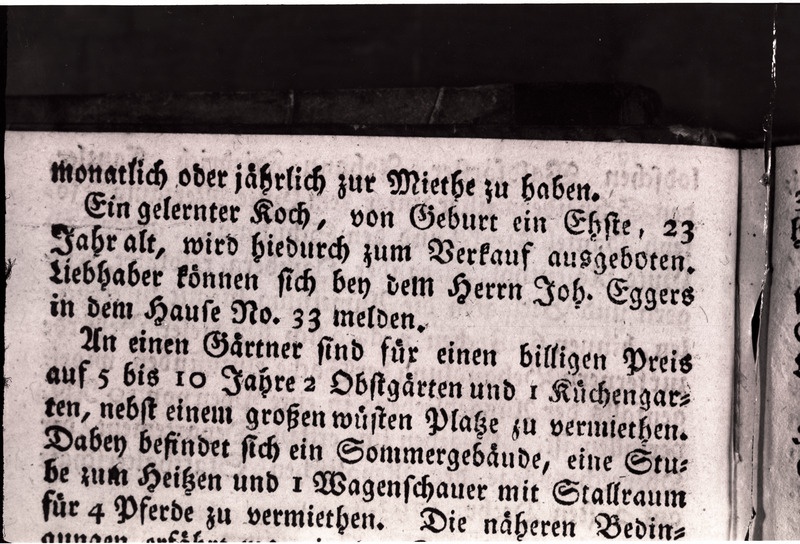 monatlich oder jährlich zur Miethe zu haben.
Ein gelernter Koch, von Geburt ein Ehste, 23
Jahr alt, wird hiedurch zum Verkauf ausgeboten.
Liebhaber können sich bey dem Herrn Joh. Eggers
in dem Hause No. 33 melden.
An einen Gärtner sind für einen billigen Preis
auf 5 bis 10 Jahre 2 Obstgärten und 1 Küchengar⸗
ten, nebst einem großen wüsten Platze zu vermiethen.
Dabey befindet sich ein Sommergebäude, eine Stu⸗
be zum Heitzen und 1 Wagenschauer mit Stallraum
für 4 Pferde zu vermiethen. Die näheren Bedin⸗
gungen erfährt